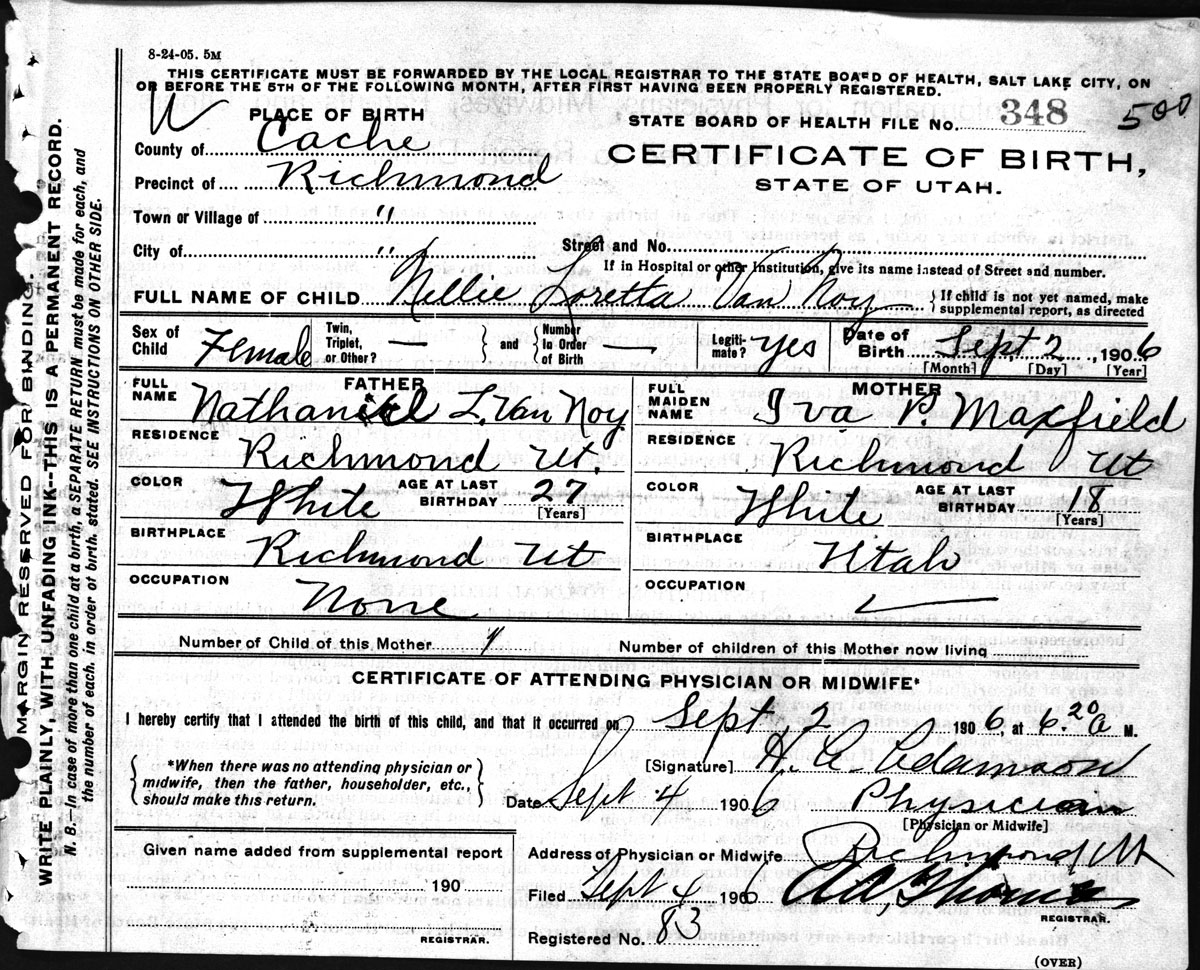 8-24-05. 5M
THIS CERTIFICATE MUST BE FORWARDED BY THE LOCAL REGISTRAR TO THE STATE BOARD OF HEALTH, SALT LAKE CITY, ON
OR BEFORE THE 5TH OF THE FOLLOWING MONTH, AFTER FIRST HAVING BEEN PROPERLY REGISTERED.
PLACE OF BIRTH
STATE BOARD OF HEALTH FILE No. 348 500
County of Cache
CERTIFICATE OF BIRTH,
STATE OF UTAH.
Precinct of Richmond
Town or Village of "
City of " Street and No.
If in Hospital or other Institution, give its name instead of Street and number.
FULL NAME OF CHILD Nellie Loretta Van Noy { If child is not yet named, make supplemental report, as directed
Sex of Child Female Twin, Triplet, or Other? — } and { Number in Order of Birth — Legitimate? yes Date of Birth Sept 2, 1906
[Month] [Day] [Year]
FATHER
FULL NAME Nathaniel L. Van Noy
RESIDENCE Richmond Ut.
COLOR White AGE AT LAST BIRTHDAY 27 [Years]
BIRTHPLACE Richmond Ut
OCCUPATION None
MOTHER
FULL MAIDEN NAME Iva P. Maxfield
RESIDENCE Richmond Ut
COLOR White AGE AT LAST BIRTHDAY 18 [Years]
BIRTHPLACE Utah
OCCUPATION —
Number of Child of this Mother 1 Number of children of this Mother now living
CERTIFICATE OF ATTENDING PHYSICIAN OR MIDWIFE*
I hereby certify that I attended the birth of this child, and that it occurred on Sept, 2 1906, at 6.20 a M.
{ *When there was no attending physician or midwife, then the father, householder, etc., should make this return. }
[Signature] H. C. Adamson
Date Sept 4 1906 Physician
[Physician or Midwife]
Given name added from supplemental report
190
REGISTRAR.
Address of Physician or Midwife Richmond Ut
Filed Sept 4 1906 Thomas
REGISTRAR.
Registered No. 83
(OVER)
MARGIN RESERVED FOR BINDING.
WRITE PLAINLY, WITH UNFADING INK--THIS IS A PERMANENT RECORD.
N. B. In case of more than one child at a birth, a SEPARATE RETURN must be made for each, and
the number of each, in order of birth, stated. SEE INSTRUCTIONS ON OTHER SIDE.